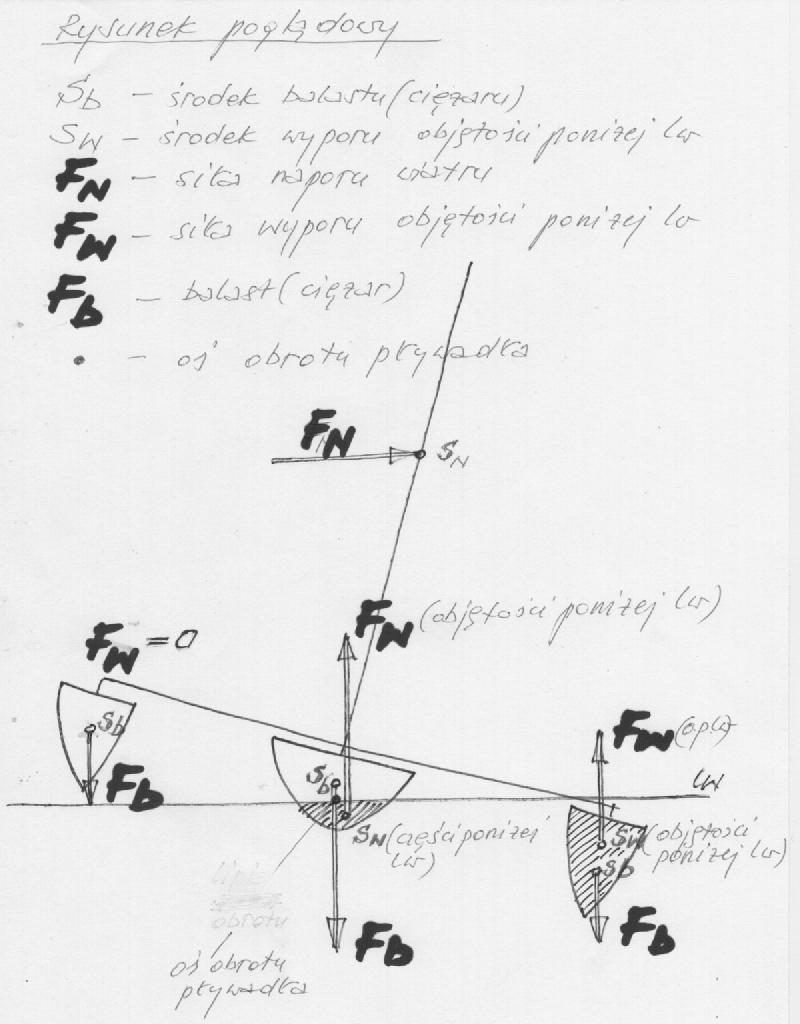 Rysunek poglądowy
Sb - środek balastu (ciężaru)
Sw - środek wyporu objętości poniżej lw
FN - siła naporu wiatru
Fw - siła wyporu objętości poniżej lw
Fb - balast (ciężar)
• - oś obrotu pływadła
FN
SN
Fw (objętości poniżej lw)
Fw = 0
Sb
Fb
Fw (oplw)
lw
Sb
SN (części poniżej
lw)
Sw (objętości
poniżej lw)
Sb
obrotu
Fb
Fb
oś obrotu
pływadła